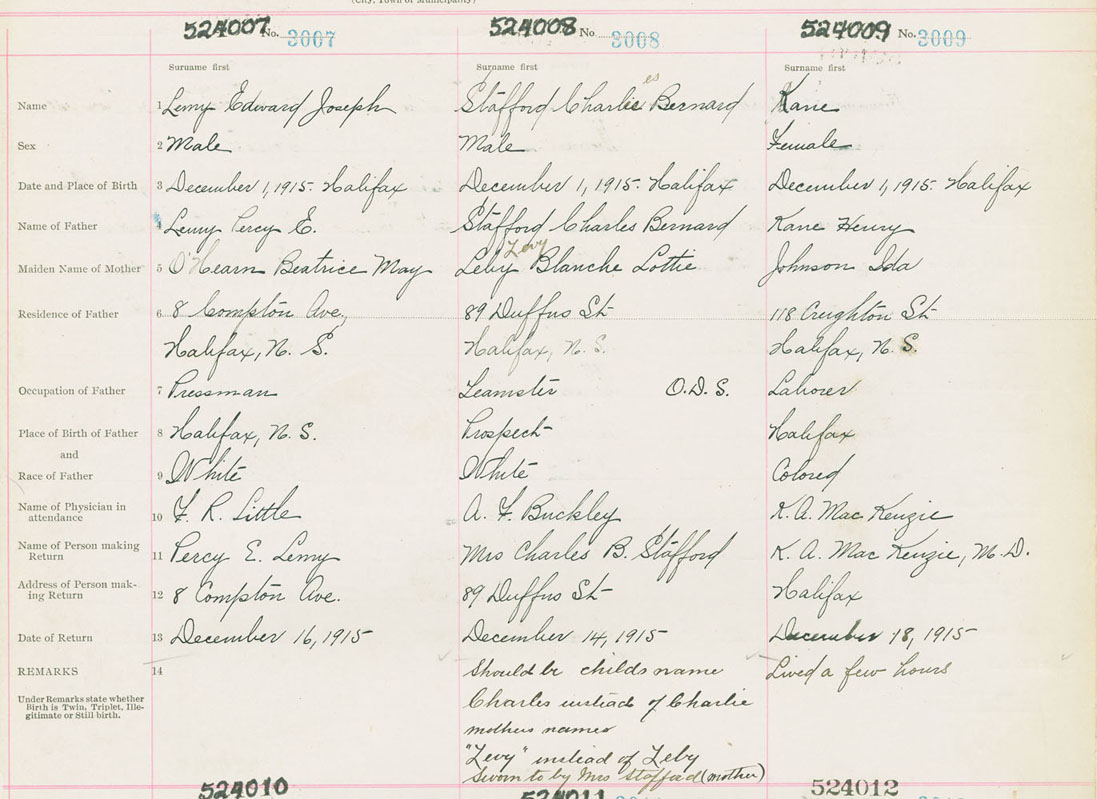 (City, Town or Municipality)
524007 No. 3007 524008 No. 3008 524009 No. 3009
Surname first Surname first Surname first
Name 1 Lemy Edward Joseph Stafford Charlie es Bernard Kane
Sex 2 Male Male Female
Date and Place of Birth 3 December 1, 1915. Halifax December 1, 1915. Halifax December 1, 1915. Halifax
Name of Father 4 Lemy Percy E. Stafford Charles Bernard Kane Henry
Maiden Name of Mother 5 O'Hearn Beatrice May Leby Levy Blanche Lottie Johnson Ida
Residence of Father 6 8 Compton Ave., 89 Duffus St 118 Creighton St
Halifax, N. S. Halifax, N. S. Halifax, N. S.
Occupation of Father 7 Pressman Teamster O.D.S. Laborer
Place of Birth of Father 8 Halifax, N. S. Prospect Halifax
and
Race of Father 9 White White Colored
Name of Physician in
attendance 10 F. R. Little A. F. Buckley K. A. MacKenzie
Name of Person making
Return 11 Percy E. Lemy Mrs Charles B. Stafford K. A. MacKenzie, M. D.
Address of Person mak-
ing Return 12 8 Compton Ave. 89 Duffus St Halifax
Date of Return 13 December 16, 1915 December 14, 1915 December 18, 1915
REMARKS 14 Should be childs name Lived a few hours
Under Remarks state whether
Birth is Twin, Triplet, Ille-
gitimate or Still birth.
Charles instead of Charlie
mothers name
"Levy" instead of Leby
Sworn to by Mrs Stafford (mother)
524010 524011 524012